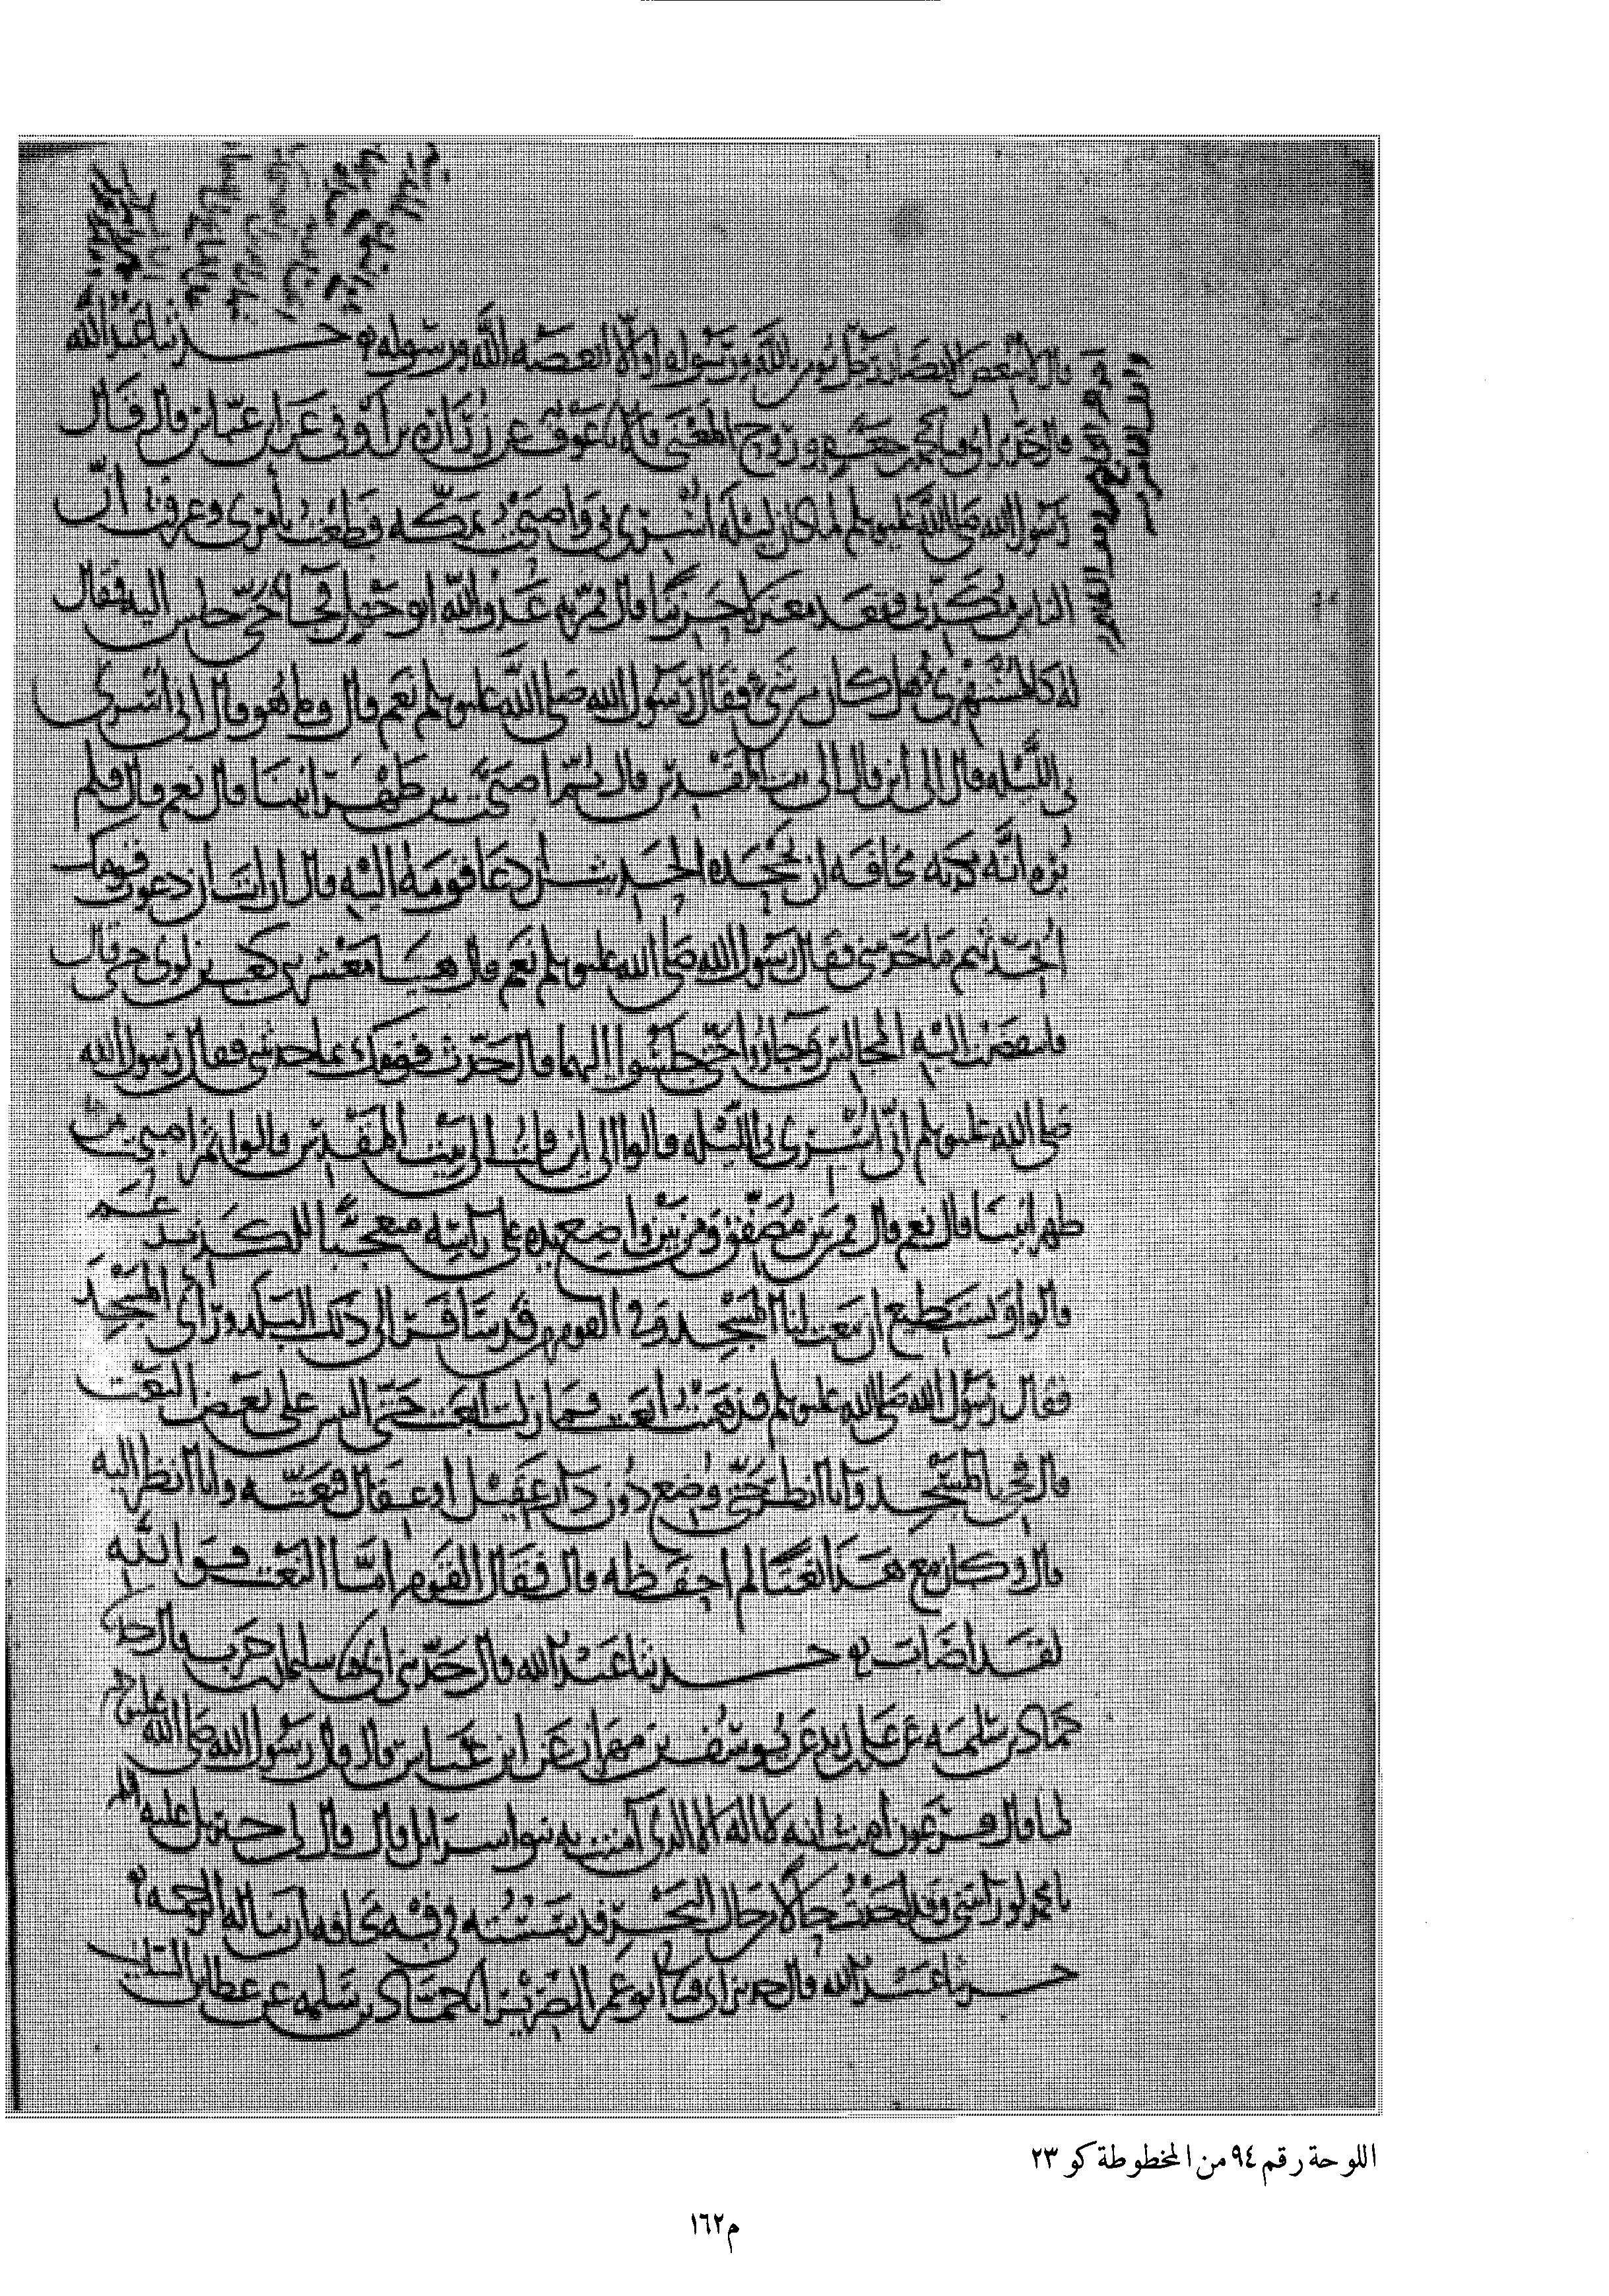 قال لا يبغض الانصار رجل يومن بالله ورسوله او الا ابغضه الله ورسوله حدثنا عبد الله
قال حدثني ابي محمد بن جعفر وروح المعنى قالا عوف عن زرارة بن اوفى عن ابن عباس قال قال
رسول الله صلى الله عليه وسلم لما كان ليلة اسري بي واصبحت بمكه فظعت بامري وعرفت ان
الناس مكذبي فقعد معتزلا حزينا قال فمر به عدو الله ابو جهل فجاء حتى جلس اليه فقال
له كالمستهزئ هل كان من شيء فقال رسول الله صلى الله عليه وسلم نعم قال وما هو قال اني اسري
بي الليله قال الى اين قال الى بيت المقدس قال ثم اصبحت بين ظهرانينا قال نعم قال فلم
يره انه يكذبه مخافه ان يجحده الحديث ان دعا قومه اليه قال ارايت ان دعوت قومك
اتحدثهم ما حدثتني فقال رسول الله صلى الله عليه وسلم نعم قال هيا معشر بني كعب بن لوي حتى قال
فانتفضت اليه المجالس وجاؤا حتى جلسوا اليهما قال حدث قومك بما حدثتني فقال رسول الله
صلى الله عليه وسلم اني اسري بي الليله قالوا الى اين قلت الى بيت المقدس قالوا ثم اصبحت بين
ظهرانينا قال نعم قال فمن بين مصفق ومن بين واضع يده على راسه متعجبا للكذب زعم
قالوا وتستطيع ان تنعت لنا المسجد وفي القوم من قد سافر الى ذلك البلد وراى المسجد
فقال رسول الله صلى الله عليه وسلم فذهبت انعت فما زلت انعت حتى التبس علي بعض النعت
قال فجي بالمسجد وانا انظر حتى وضع دون دار عقيل او عقال فنعته وانا انظر اليه
قال وكان مع هذا نعت لم احفظه قال فقال القوم اما النعت فوالله
لقد اصاب حدثنا عبد الله قال حدثني ابي سليمان بن حرب قال
حماد بن سلمه عن علي بن زيد عن يوسف بن مهران عن ابن عباس قال قال رسول الله صلى الله عليه وسلم
لما قال فرعون امنت انه لا اله الا الذي آمنت به بنو اسرايل قال قال لي جبريل عليه السلم
يا محمد لو رايتني وقد اخذت حالا من حال البحر فدسسته في فيه مخافه ان تناله الرحمه
حدثنا عبد الله قال حدثني ابي ابو عمر الضرير حماد بن سلمه عن عطا بن السايب
اللوحة رقم ٩٤ من المخطوطة كو ٢٣
م١٦٢